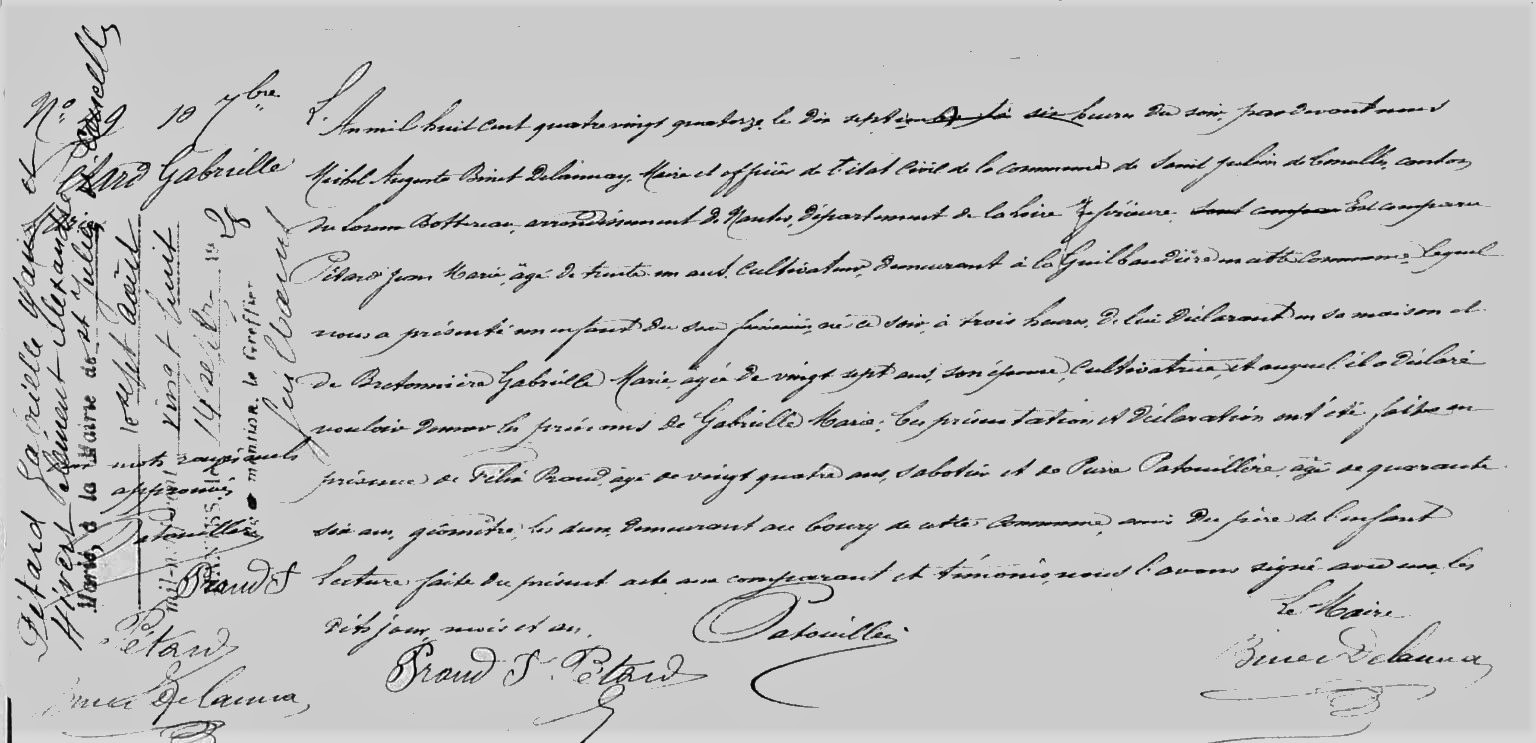 N° 19 10 7bre
Pétard Gabrielle
L'An mil huit cent quatre vingt quatorze, le dix septembre à six heures du soir, par devant nous
Michel Auguste Binet Delaunay, Maire et officier de l'état civil de la commune de Saint Julien de Concelles, canton
du Loroux Bottereau, arrondissement de Nantes, département de la Loire Inférieure, sont compar Est comparu
Pétard Jean Marie, âgé de trente un ans, cultivateur, demeurant à la Guilbaudière en cette commune, lequel
nous a présenté un enfant du sexe féminin, né ce soir à trois heures, de lui déclarant en sa maison et
de Bretonnière Gabrielle Marie, âgée de vingt sept ans, son épouse, cultivatrice, et auquel il a déclaré
vouloir donner les prénoms de Gabrielle Marie; les présentation et déclaration ont été faites en
présence de Félix Praud, âgé de vingt quatre ans, sabotier et de Pierre Patouillère, âgé de quarante
six ans, géomètre, les deux demeurant au bourg de cette commune, amis du père de l'enfant
Lecture faite du présent acte aux comparant et témoins, nous l'avons signé avec eux, les
dits jour, mois et an.
Le Maire
Patouillère
Praud F. Pétard
Binet Delauna
mots rayés nuls
approuvés
Patouillère
Praud F
Pétard
Binet Delauna
Pétard Gabrielle Marie et
Hivert Clément Alexandre
Mariés à la Mairie de St Julien de Concelles
le sept août
mil-neuf-cent vingt huit
14 septbre 1928
mention, le Greffier
Guilbaud